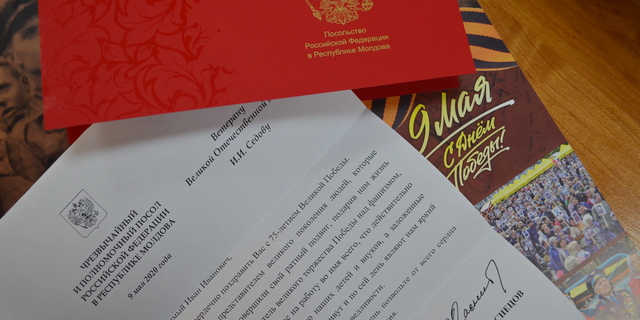 Посольство
Российской Федерации
в Республике Молдова
9 мая
С Днём
Победы!
Ветерану
Великой Отечественной
И.И. Седову
ЧРЕЗВЫЧАЙНЫЙ
И ПОЛНОМОЧНЫЙ ПОСОЛ
РОССИЙСКОЙ ФЕДЕРАЦИИ
В РЕСПУБЛИКЕ МОЛДОВА
9 мая 2020 года
Иван Иванович,
поздравить Вас с 75-летием Великой Победы.
представителем великого поколения людей, которые
свершили свой ратный подвиг, подарив нам жизнь
великого торжества Победы над фашизмом,
на работу во имя всего, что действительно
наших детей и внуков, а заложенные
и по сей день являют нам яркий
позвольте от всего сердца